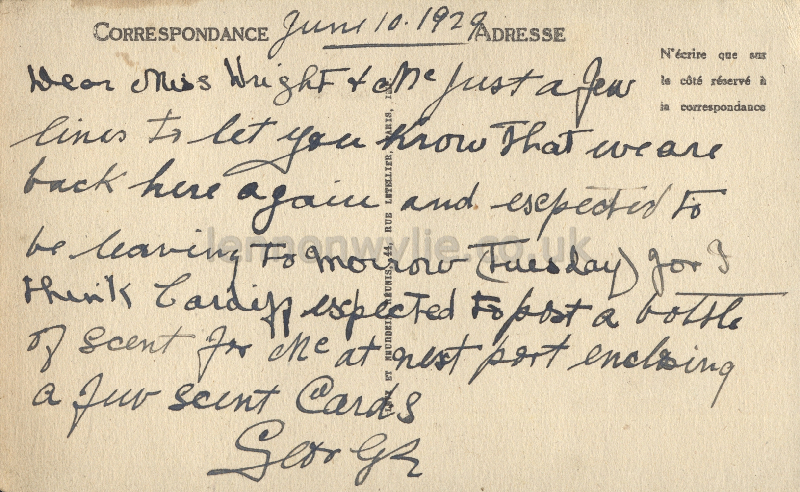 CORRESPONDANCE June 10. 1929 ADRESSE
N'écrire que sur
le côté réservé à
la correspondance
Dear Miss Wright & Mc Just a few
lines to let you Know That we are
back here again and expected to
be leaving To morrow (Tuesday) for I
think Cardiff expected to post a bottle
of scent for Mc at next port enclosing
a few scent Cards
George
RÉUNIS, 44, RUE LETELLIER, PARIS,
lennonwylie.co.uk